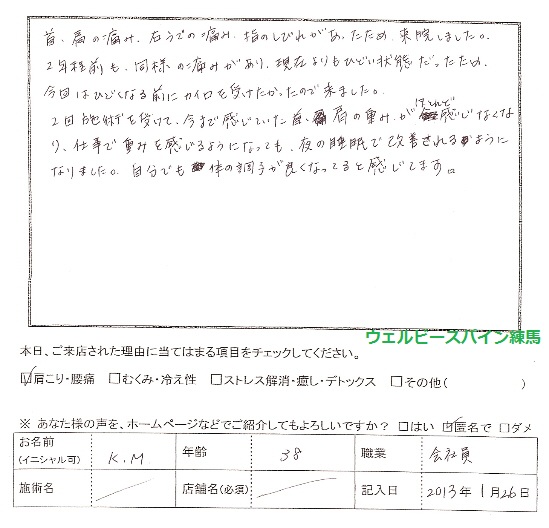 首、肩の痛み、右うでの痛み、指のしびれがあったため、来院しました。
2年程前も、同様の痛みがあり、現在よりもひどい状態だったため、
今回はひどくなる前にカイロを受けたかったので来ました。
2回施術を受けて、今まで感じていた首、肩の重みがほとんど感じなくな
り、仕事で重みを感じるようになっても、夜の睡眠で改善されるように
なりました。自分でも体の調子が良くなってると感じてます。
ウェルビーズパイン練馬
本日、ご来店された理由に当てはまる項目をチェックしてください。
☑肩こり・腰痛 □むくみ・冷え性 □ストレス解消・癒し・デトックス □その他( )
※ あなた様の声を、ホームページなどでご紹介してもよろしいですか? □はい ☑匿名で □ダメ
お名前 (イニシャル可) K.M 年齢 38 職業 会社員
施術名 店舗名(必須) 記入日 2013年1月26日